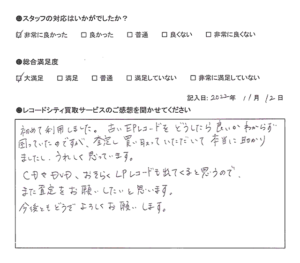 ●スタッフの対応はいかがでしたか?
☑非常に良かった □良かった □普通 □良くない □非常に良くない
●総合満足度
☑大満足 □満足 □普通 □満足していない □非常に満足していない
記入日: 2022年 11月 12日
●レコードシティ買取サービスのご感想を聞かせてください
初めて利用しました。古いEPレコードをどうしたら良いかわからず
困っていたのですが、査定し買い取っていただいて本当に助かり
ましたし、うれしく思っています。
CDやDVD、おそらくLPレコードも出てくると思うので、
また査定をお願いしたいと思います。
今後ともどうぞよろしくお願いします。